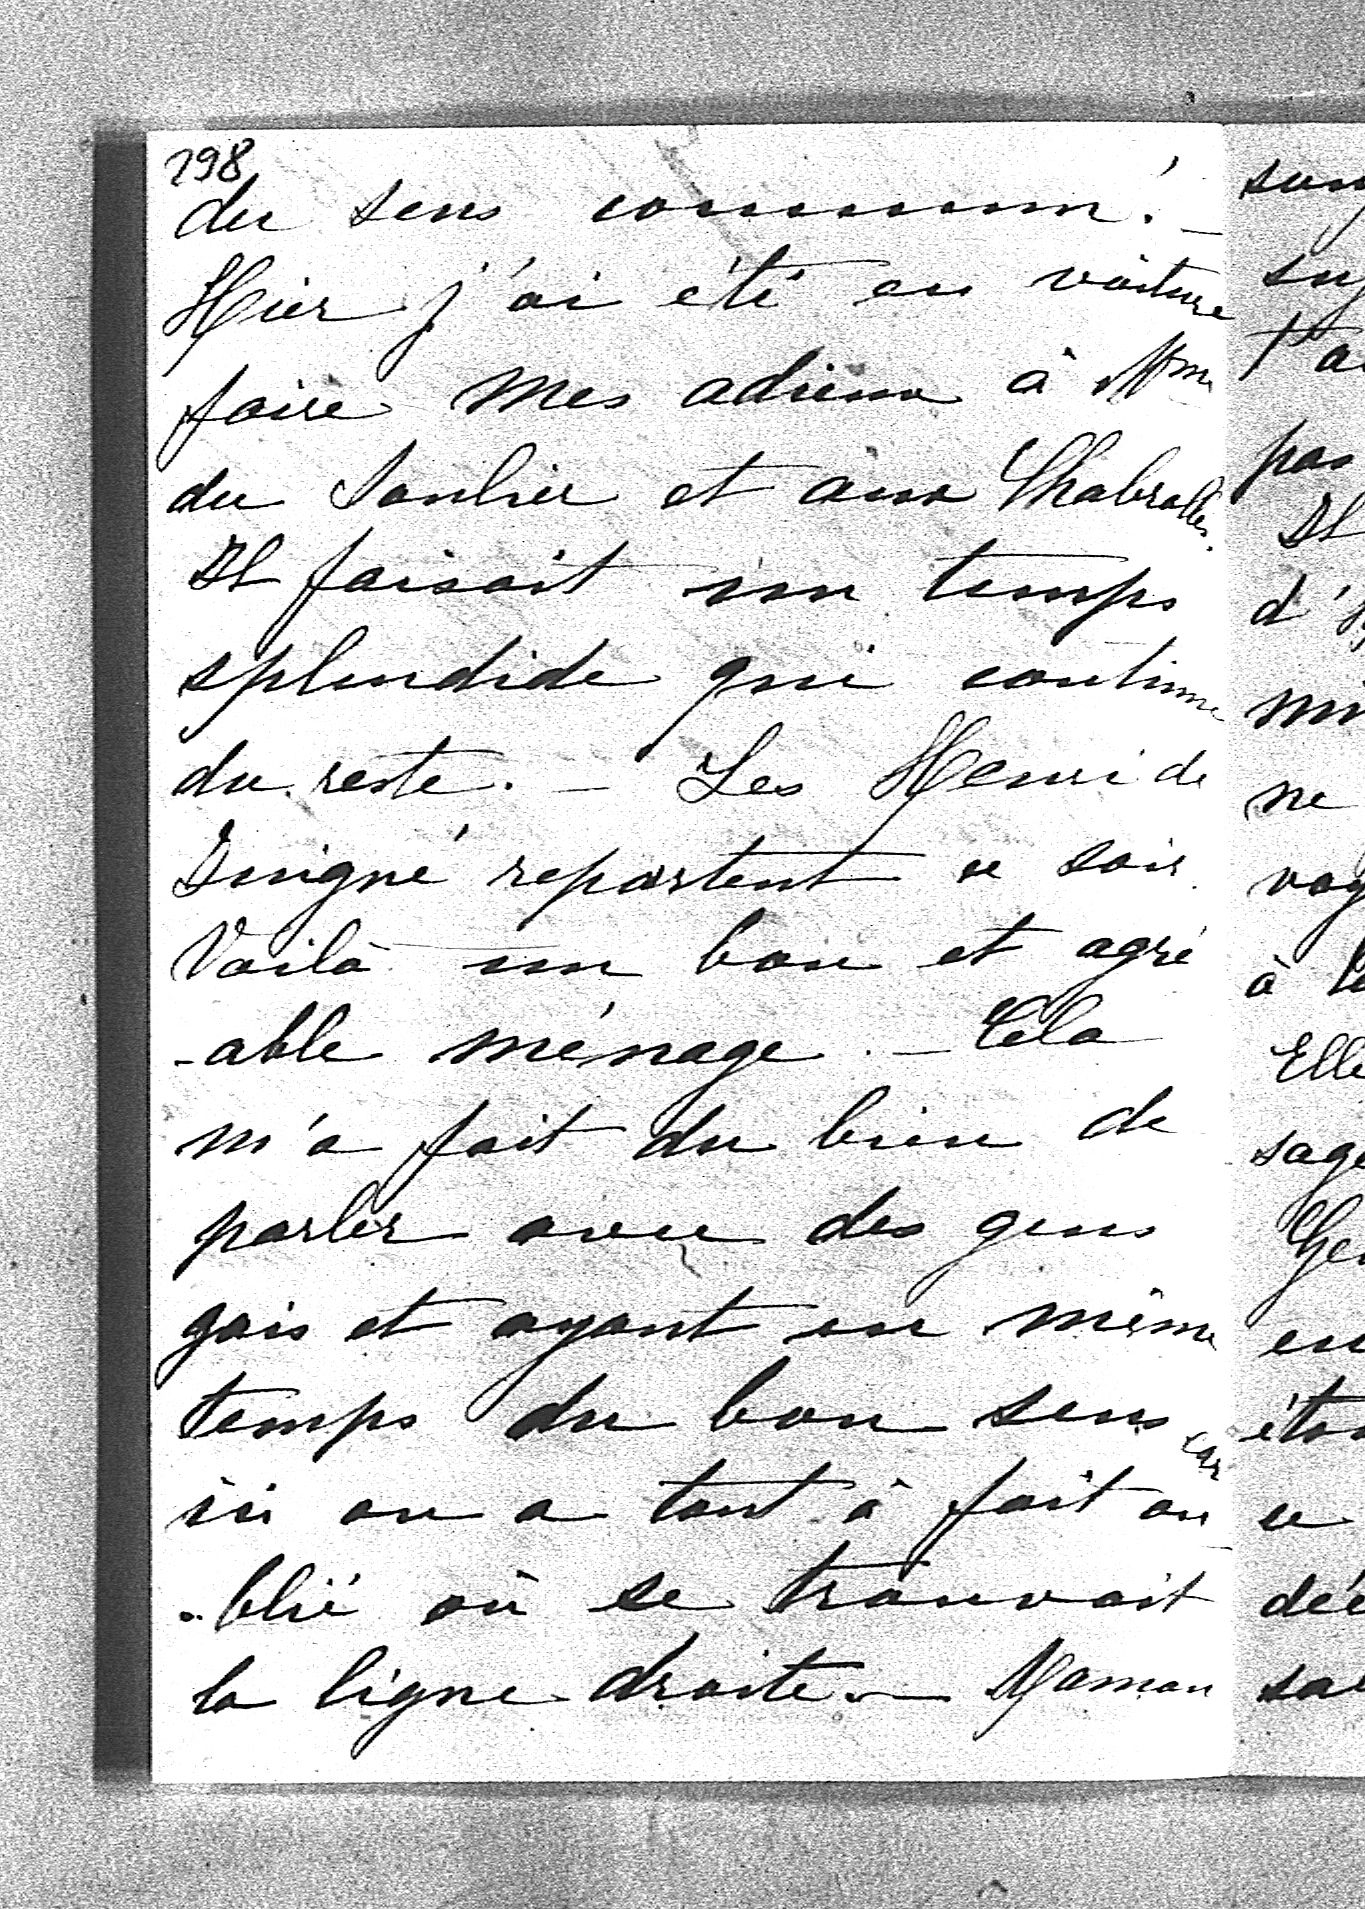 298
du sens commun! _
Hier j'ai été en voiture
faire mes adieux à Mme
du Saulier et aux Chabrolles.
Il faisait un temps
splendide qui continue
du reste. _ Les Henri de
Juigné repartent ce soir.
Voilà un bon et agré
-able ménage. _ Cela
m'a fait du bien de
parler avec des gens
gais et ayant en même
temps du bon sens car
ici on a tout à fait ou_
-blié où se trouvait
la ligne droite. _ Maman
pas
Il
ne
à
Elle
en
ce